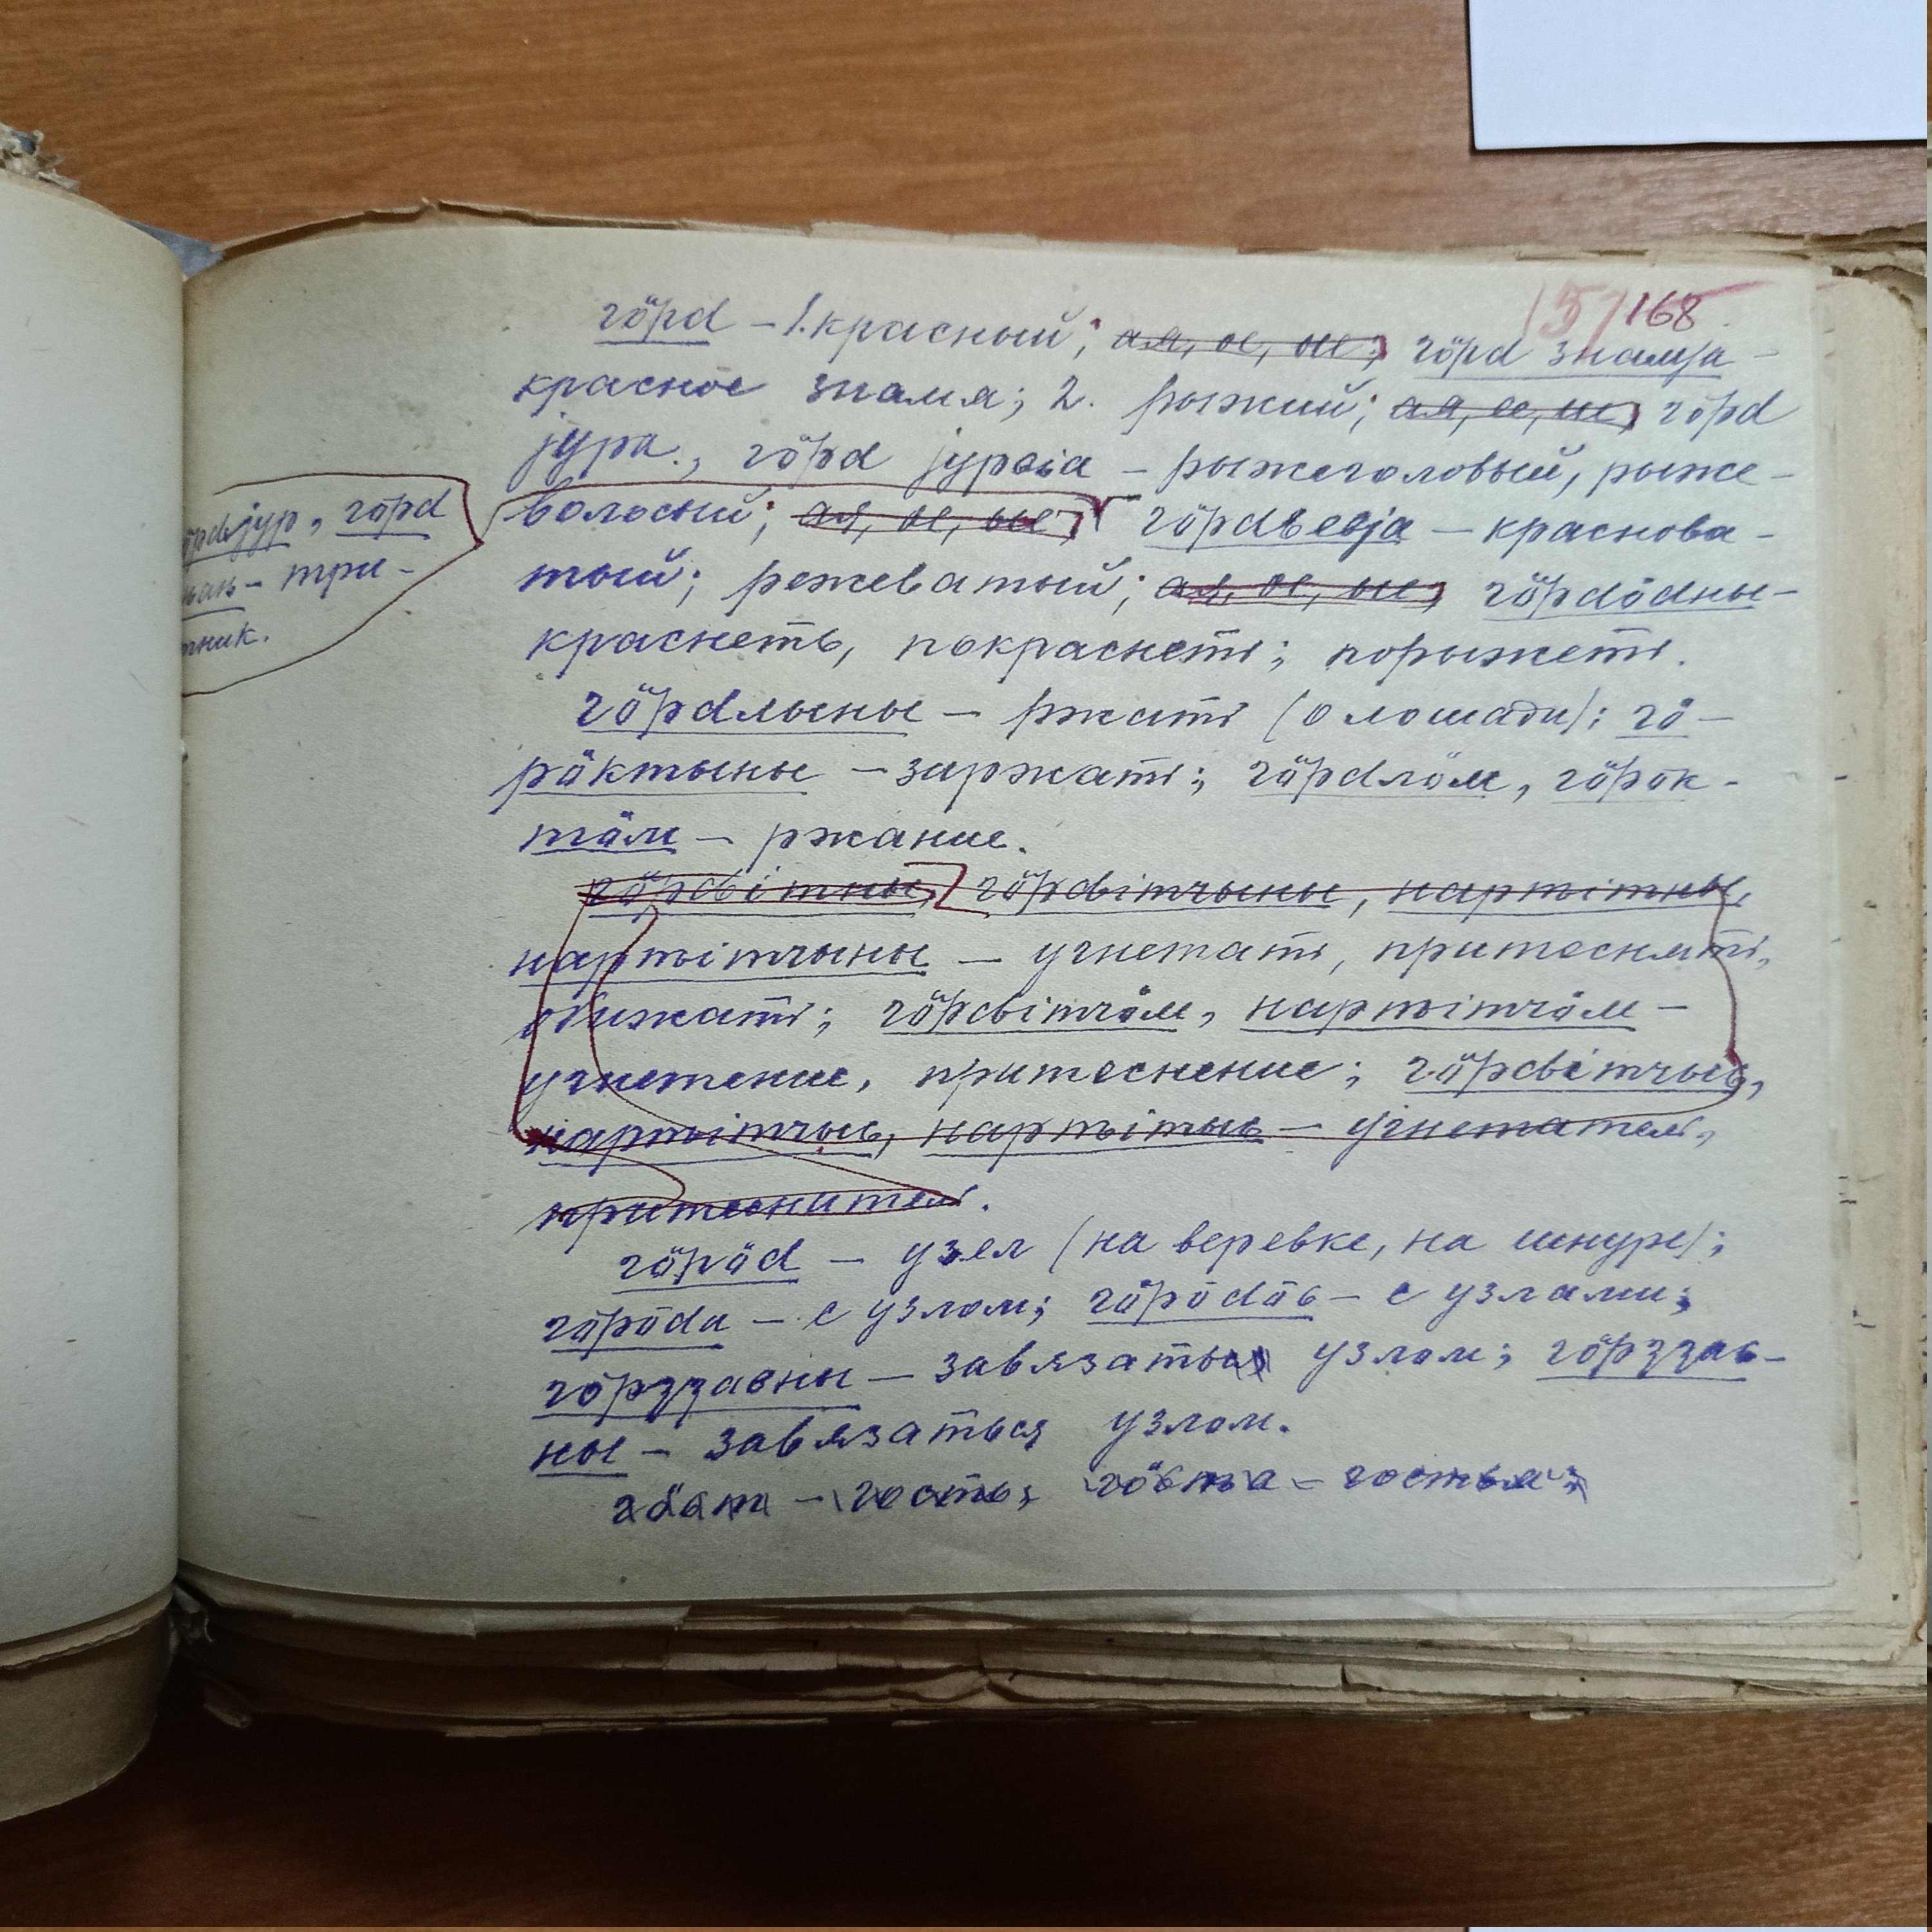 157 168
гöрd – 1. красный; ая, ое, ые; гöрd знамја –
красное знамя; 2. рыжий; ая, ое, ие; гöрd
јура., гöрd јурсiа – рыжеголовый, рыже-
волосый; ая, ое, ые; гöрdвевја – краснова-
тый; режеватый; ая, ое, ые; гöрdödны –
краснеть, покраснеть; порыжеть.
јур, гöрd
– три-
ник.
гöрdлыны – ржать (о лошади); гö-
рöктыны – заржать; гöрdлöм, гöрöк-
тöм – ржание.
гöрсвiтны, гöрсвiтчыны, нартiтны,
нартiтчыны – угнетать, притеснять,
обижать; гöрсвiтчöм, нартiтчöм –
угнетение, притеснение; гöрсвiтчыс,
нартiтчыс, нартiтыс – угнетатель,
притеснитель.
гöрöd – узел (на веревке, на шнуре);
гöрöda – с узлом; гöрödöс – с узлами;
гöрззавны – завязать узлом; гöрззас-
ны – завязаться узлом.
гöст – гость; гöстa – гостья;